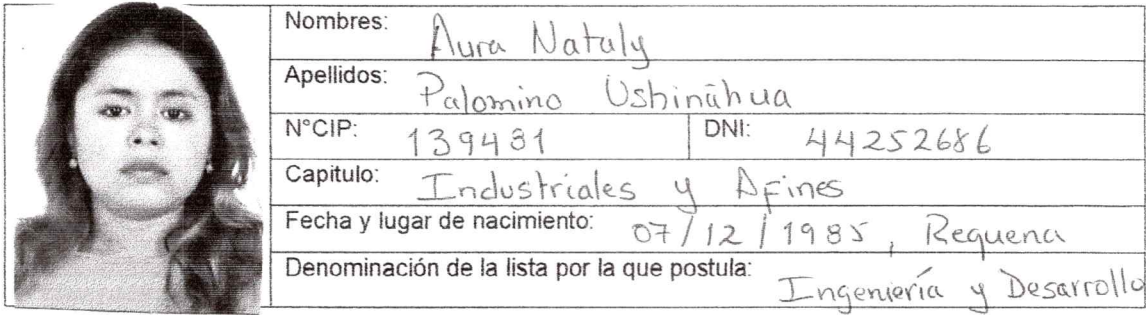 Nombres: Aura Nataly
Apellidos: Palomino Ushiñahua
N°CIP: 139431 DNI: 44252686
Capitulo: Industriales y Afines
Fecha y lugar de nacimiento: 07/12/1985, Requena
Denominación de la lista por la que postula: Ingeniería y Desarrollo